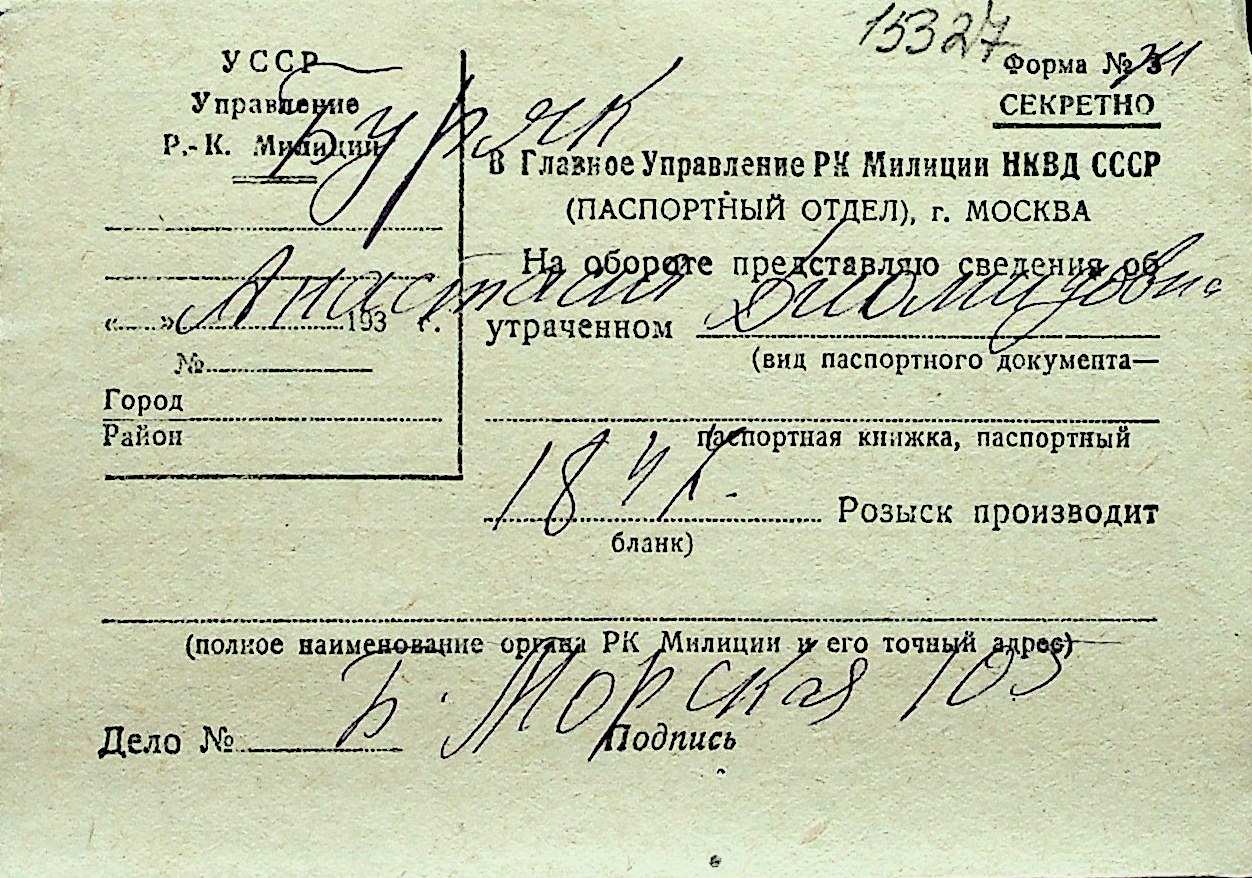 15327
УССР
Управление
Р.-К. Милиции
Форма № 3
СЕКРЕТНО
Буряк
В Главное Управление РК Милиции НКВД СССР
(ПАСПОРТНЫЙ ОТДЕЛ), г. МОСКВА
На обороте представляю сведения об
Анастасий Диомидович
«.....» 193 г.
утраченном
(вид паспортного документа—
№
Город
Район
паспортная книжка, паспортный
18
Розыск производит
бланк)
(полное наименование органа РК Милиции и его точный адрес)
Б. Морская 105
Дело №
Подпись